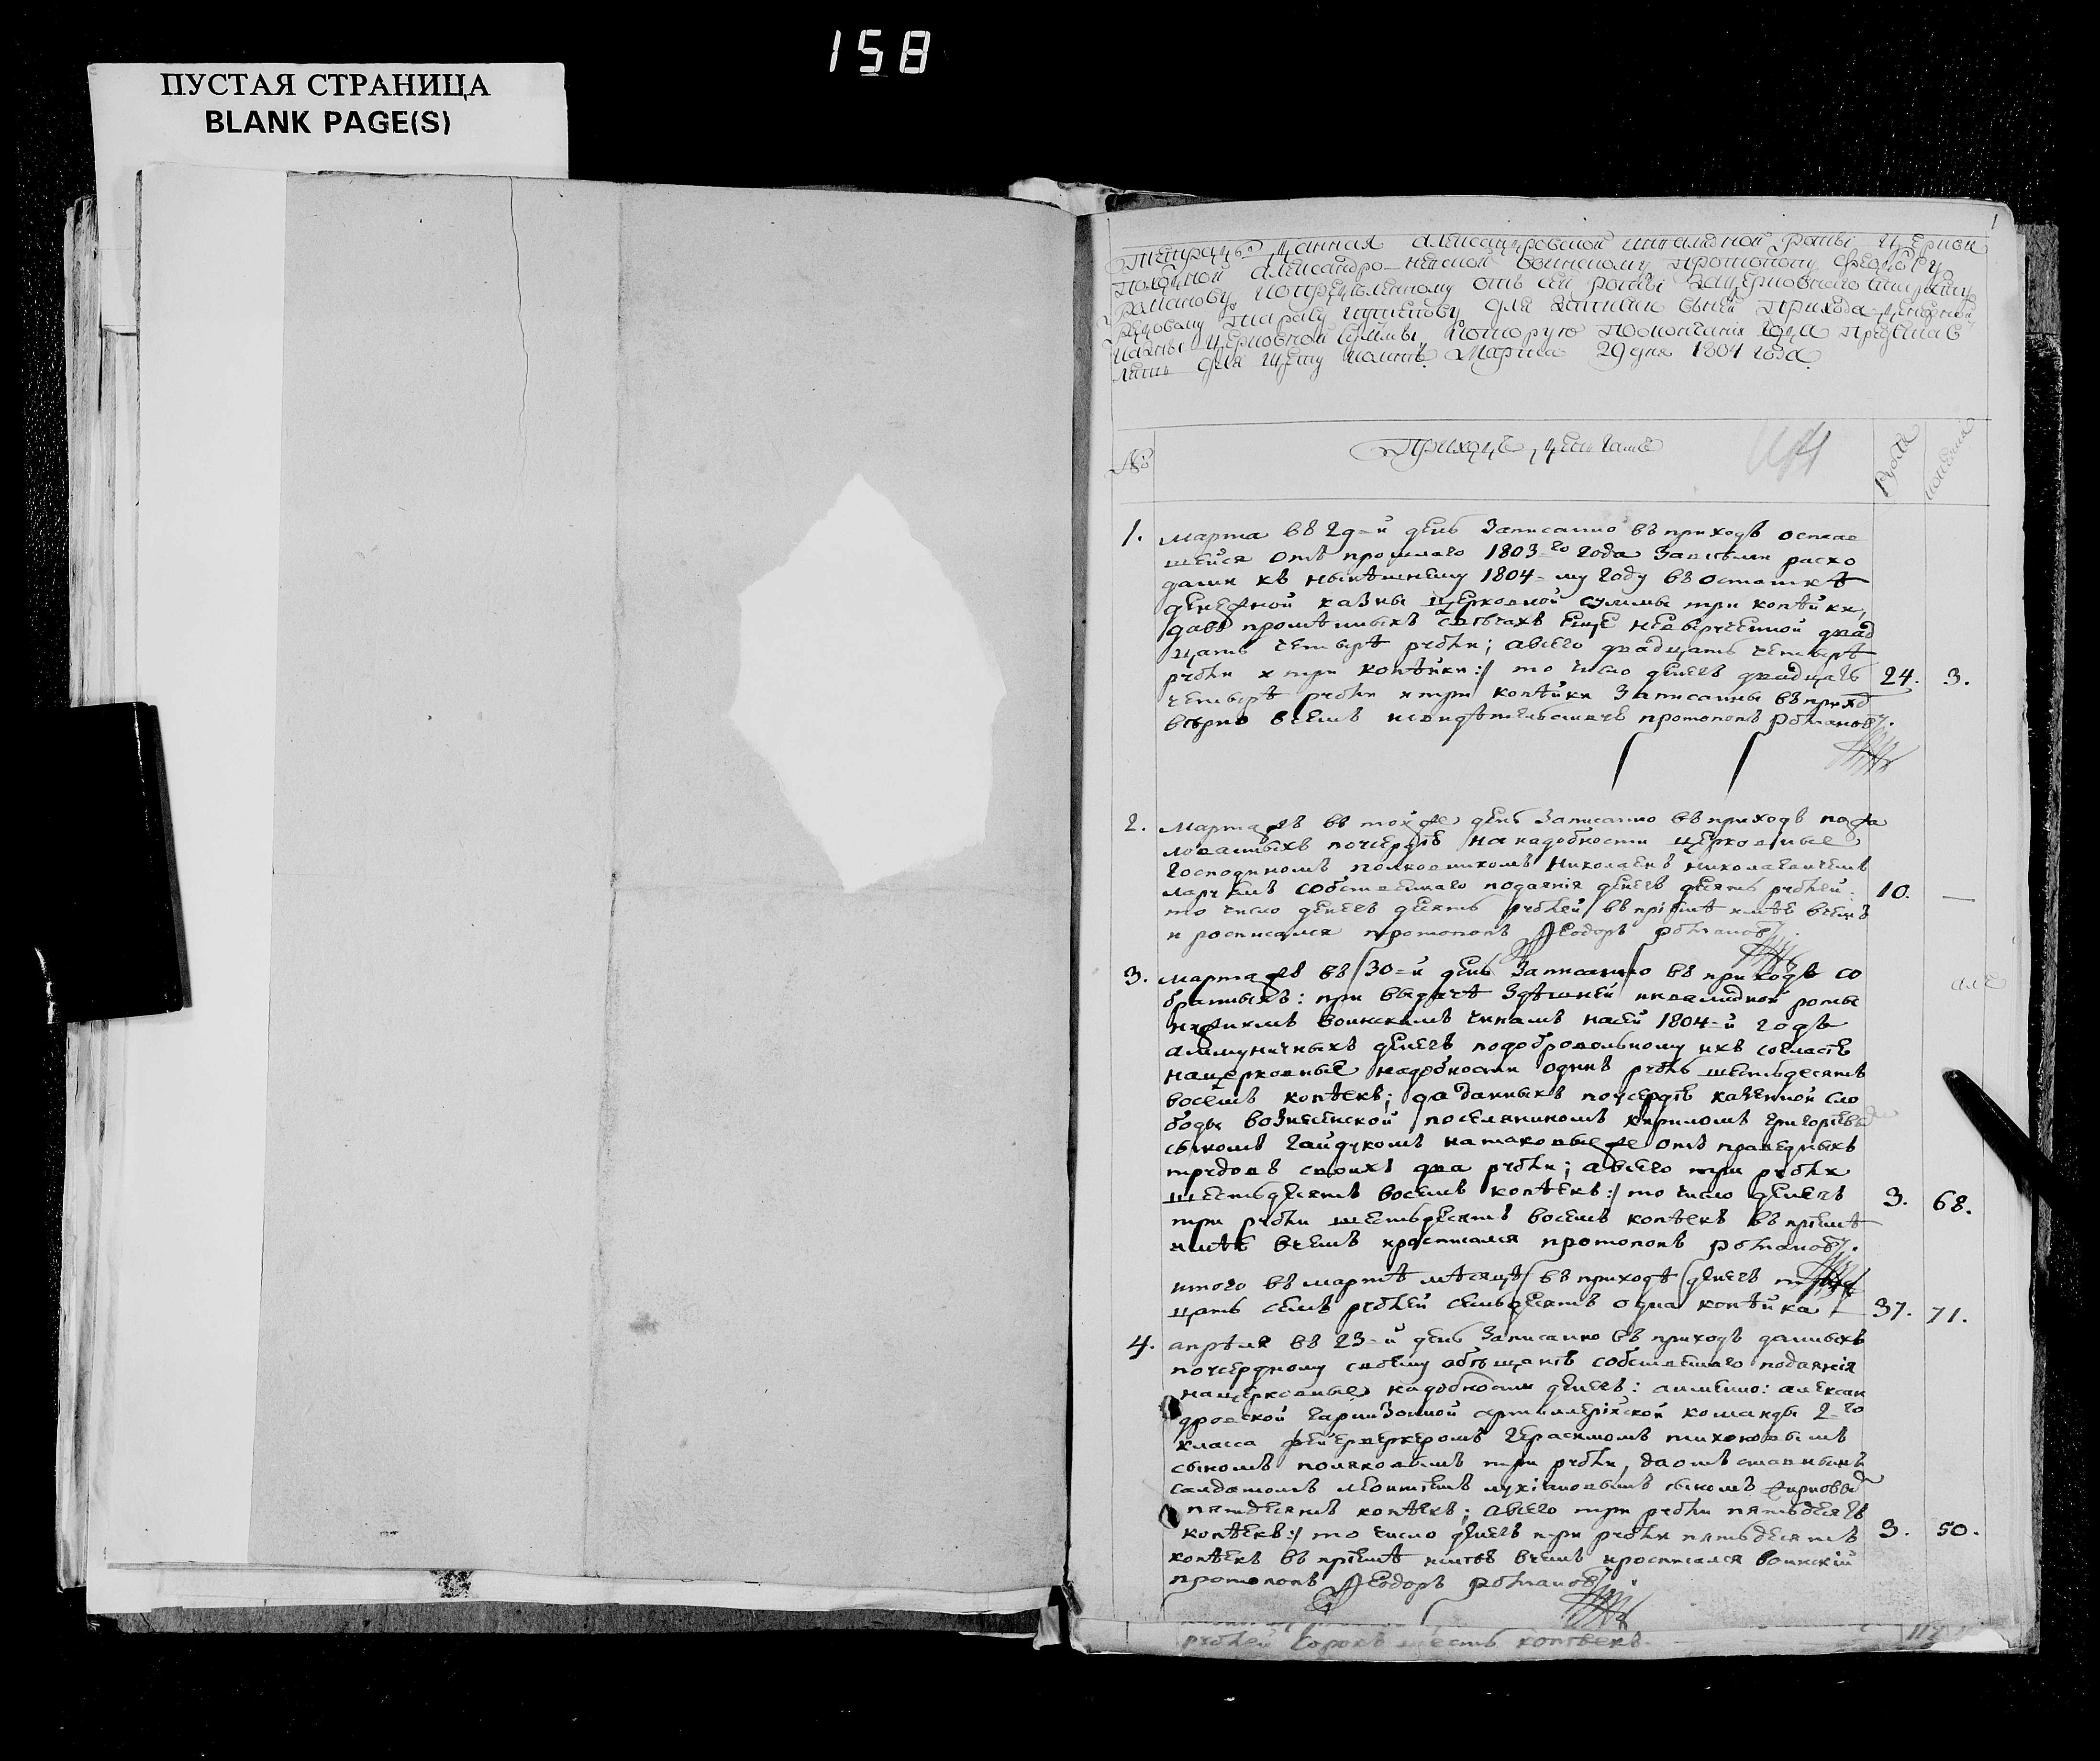 158
ПУСТАЯ СТРАНИЦА
BLANK PAGE(S)
1
Тетрадь данная александровской инвалидной роты церкви
походной александро-невской воинскому протопопу феодору
романову, и определенному отъ сей роты
рядовому для записки въ ней прихода денежной
казны церковной суммы, которую по окончании года представ
лить для щету Марта 29 дня 1804 года.
№
Приходъ деньгамъ
рубли
копейки
1. марта въ 29-й день записанно въ приходъ остав
шейся отъ прошлаго 1803-го года за всеми расхо
дами къ нынѣшнему 1804-му году въ остаткѣ
денежной казны церковной суммы три копѣйки,
да въ еще двад
цать четыре рубли; а всего двадцать четыре
рубли и три копѣйки:/ то число денегъ двадцать
24. 3.
четыре рубли и три копѣйки записанны въ приход
верно в чемъ и свидѣтельствуетъ протопопъ романовъ.
2. марта жъ въ той же день записанно въ приходъ пожа
лованныхъ по усердию на надобности церковные
господиномъ полковникомъ николаемъ николаевичемъ
собственнаго подаянія денегъ десять рублей:
10. —
то число денегъ десять рублей въ пріемѣ имѣю в чемъ
и росписался протопопъ Феодоръ романовъ.
3. марта жъ въ 30-й день записанно въ приходъ со
бранныхъ: при выдачѣ здѣшней инвалидной роты
нижнимъ воинскимъ чинамъ на сей 1804-й годъ
аммуничныхъ денегъ по добровольному ихъ согласию
на церковные надобности одинъ рубль шестьдесятъ
восемь копѣекъ; да данныхъ по усердию казенной сло
боды вознесенской поселяниномъ кириломъ григориевы
сыномъ гайдукомъ на таковые же отъ праведныхъ
трудовъ своихъ два рубли; а всего три рубли
шестьдесятъ восемь копѣекъ:/ то число денегъ
3. 68.
три рубли шестьдесятъ восемь копѣекъ въ пріемѣ
имѣю в чемъ и росписался протопопъ романовъ.
итого въ мартѣ мѣсяцѣ въ приходѣ денегъ трид
цать семь рублей семьдесятъ одна копѣйка
37. 71.
4. апрѣля въ 23-й день записанно въ приходъ данныхъ
по усердному своему обещанию собственнаго подаянія
на церковные надобности денегъ: а именно: алексан
дровской гарнизонной артиллерійской команды 2-го
класса фейерверкеромъ герасимомъ тихоновымъ
сыномъ поляковымъ три рубли, да отставнымъ
салдатомъ сыномъ
пятдесятъ копѣекъ; а всего три рубли пятьдесятъ
копѣекъ:/ то число денегъ три рубли пятьдесятъ
3. 50.
копѣекъ въ пріемѣ имѣю в чемъ и росписался воинскій
протопопъ Феодоръ романовъ.
рублей сорокъ шесть копѣекъ